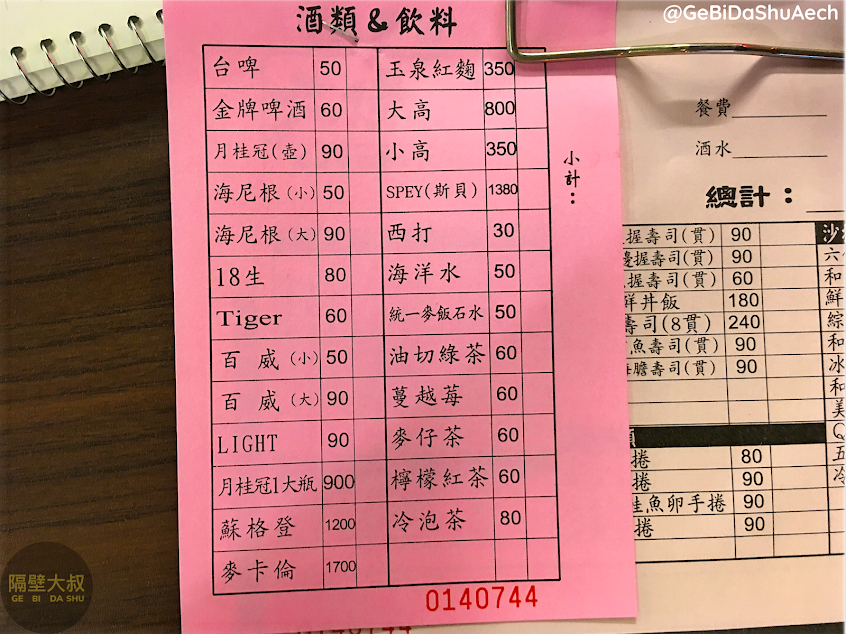 @GeBiDaShuAech
酒類&飲料
台啤 50 玉泉紅麴 350
金牌啤酒 60 大高 800
月桂冠(壺) 90 小高 350
海尼根(小) 50 SPEY(斯貝) 1380
海尼根(大) 90 西打 30
18生 80 海洋水 50
Tiger 60 統一麥飯石水 50
百威(小) 50 油切綠茶 60
百威(大) 90 蔓越莓 60
LIGHT 90 麥仔茶 60
月桂冠1大瓶 900 檸檬紅茶 60
蘇格登 1200 冷泡茶 80
麥卡倫 1700
小計：
0140744
餐費
酒水
總計：
握壽司(貫) 90
握壽司(貫) 90
握壽司(貫) 60
丼飯 180
壽司(8貫) 240
魚壽司(貫) 90
膽壽司(貫) 90
捲 80
捲 90
魚卵手捲 90
捲 90
沙
六
和
鮮
綜
和
冰
和
美
Q
五
冷
隔壁大叔
GE BI DA SHU